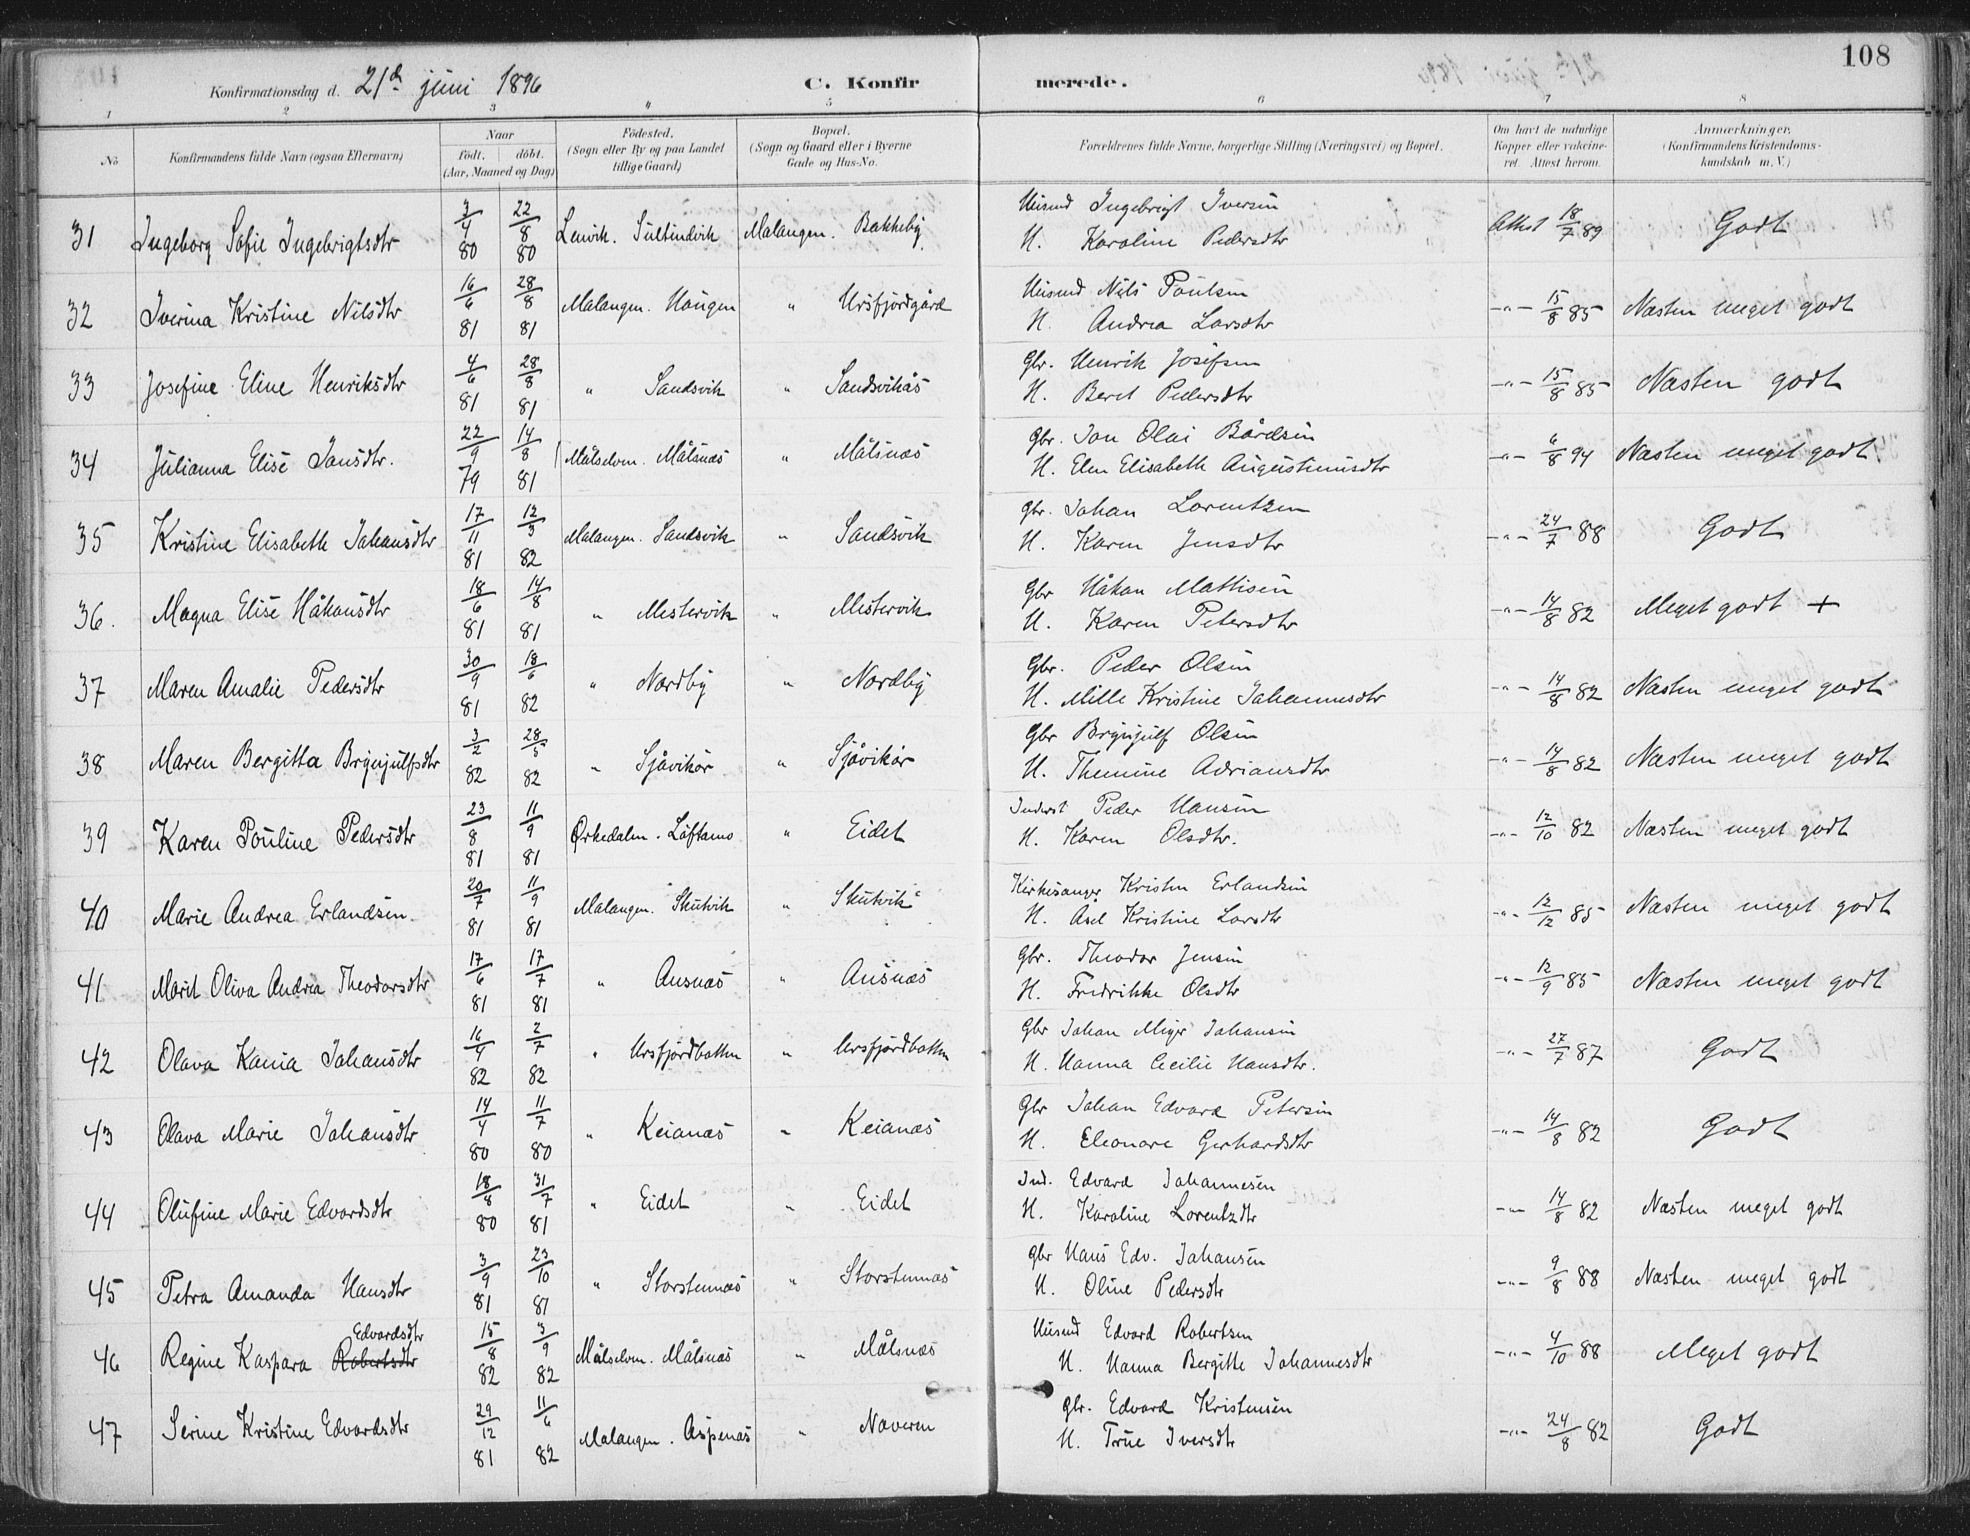 108
Konfirmationsdag d. 21de juni 1896 C. Konfirmerede.
1 2 3 " 5 6 7 8
No
Konfirmandens fulde Navn (ogsaa Efternavn)
Naar
født. døbt.
(Aar, Maaned og Dag)
Fødested.
(Sogn eller By og paa Landet
tillige Gaard)
Bopæl.
(Sogn og Gaard eller i Byerne
Gade og Hus-No.
Forældrenes fulde Navne, borgerlige Stilling (Næringsvei) og Bopæl.
Om havt de naturlige
Kopper eller vakcine-
ret. Attest herom.
Anmærkninger,
(Konfirmandens Kristendoms-
kundskab m. V.)
31 Ingeborg Sofie Ingebrigtsdtr 3/4 80 22/8 80 Lenvik. Sultindvik Malangen. Bakkeby Husmd Ingebrigt Iversen
H. Karoline Pedersdtr Attest 18/7 89 Godt
32 Iverina Kristine Nilsdtr 16/6 81 28/8 81 Malangen. Haugen " Ursfjordgård Husmd Nils Paulsen
H. Andrea Larsdtr -"- 15/8 85 Næsten meget godt
33 Josefine Eline Henriksdtr 4/6 81 28/8 81 " Sandsvik " Sandsvikås Gbr. Henrik Josefsen
H. Beret Pedersdtr -"- 15/8 85 Næsten godt
34 Julianna Elise Jansdtr. 22/9 79 14/8 81 Målselven. Målsnæs " Målsnæs Gbr. Jon Olai Bårdsen
H. Elen Elisabeth Augustinusdtr -"- 6/8 94 Næsten meget godt
35 Kristine Elisabeth Johansdtr 17/11 81 12/3 82 Malangen. Sandsvik " Sandsvik Gbr. Johan Lorentzen
H. Karen Jensdtr -"- 24/7 88 Godt
36. Magna Elise Håkansdtr 18/6 81 14/8 81 " Mestervik " Mestervik Gbr Håkan Mattisen
H. Karen Petersdtr -"- 14/8 82 Meget godt +
37 Maren Amalie Pedersdtr 30/9 81 18/6 82 " Nordby " Nordby Gbr. Peder Olsen
H. Mille Kristine Johannesdtr -"- 14/8 82 Næsten meget godt
38 Maren Bergitta Brynjulfsdtr 3/2 82 28/5 82 " Sjåvikør " Sjåvikør Gbr Brynjulf Olsen
H. Themine Adriansdtr -"- 14/8 82 Næsten meget godt
39 Karen Pouline Pedersdtr 23/8 81 11/9 81 Ørkedalen. Loftamo " Eidet Inderst Peder Hansen
H. Karen Olsdtr. -"- 12/10 82 Næsten meget godt
40 Marie Andrea Erlandsen. 20/7 81 11/9 81 Malangen. Skutvik " Skutvik Kirkesanger Kristen Erlandsen
H. Asel Kristine Larsdtr -"- 12/12 85 Næsten meget godt
41 Marit Oliva Andrea Theodorsdtr 17/6 81 17/7 81 " Ansnæs " Ansnæs Gbr. Theodor Jensen
H. Fredrikke Olsdtr -"- 12/9 85 Næsten meget godt
42 Olava Kania Johansdtr 16/4 82 2/7 82 " Ursfjordbotten " Ursfjordbotten Gbr Johan Meyer Johansen
H. Hanna Cecilie Hansdtr. -"- 27/7 87 Godt
43 Olava Marie Johansdtr 14/4 80 11/7 80 " Keianæs " Keianæs Gbr Johan Edvard Petersen
H. Eleonare Gerhardsdtr -"- 14/8 82 Godt
44 Olufine Marie Edvardsdtr 18/8 80 31/7 81 " Eidet " Eidet Ind. Edvard Johannesen
H. Karoline Lorentzdtr -"- 14/8 82 Næsten meget godt
45 Petra Amanda Hansdtr 3/9 81 23/10 81 " Storstennæs " Storstennæs Gbr Hans Edv. Johansen
H. Oline Pedersdtr -"- 9/8 88 Næsten meget godt
46 Regine Kaspara Robertsdtr Edvardsdtr 15/8 82 3/9 82 Målselven. Målsnæs " Målsnæs Husmd Edvard Robertsen
H. Hanna Bergitte Johannesdtr -"- 4/10 88 Meget godt
47 Serine Kristine Edvardsdtr 29/12 81 11/6 82 Malangen. Aspenæs " Naveren Gbr. Edvard Kristensen
H. Trine Iversdtr -"- 24/8 82 Godt